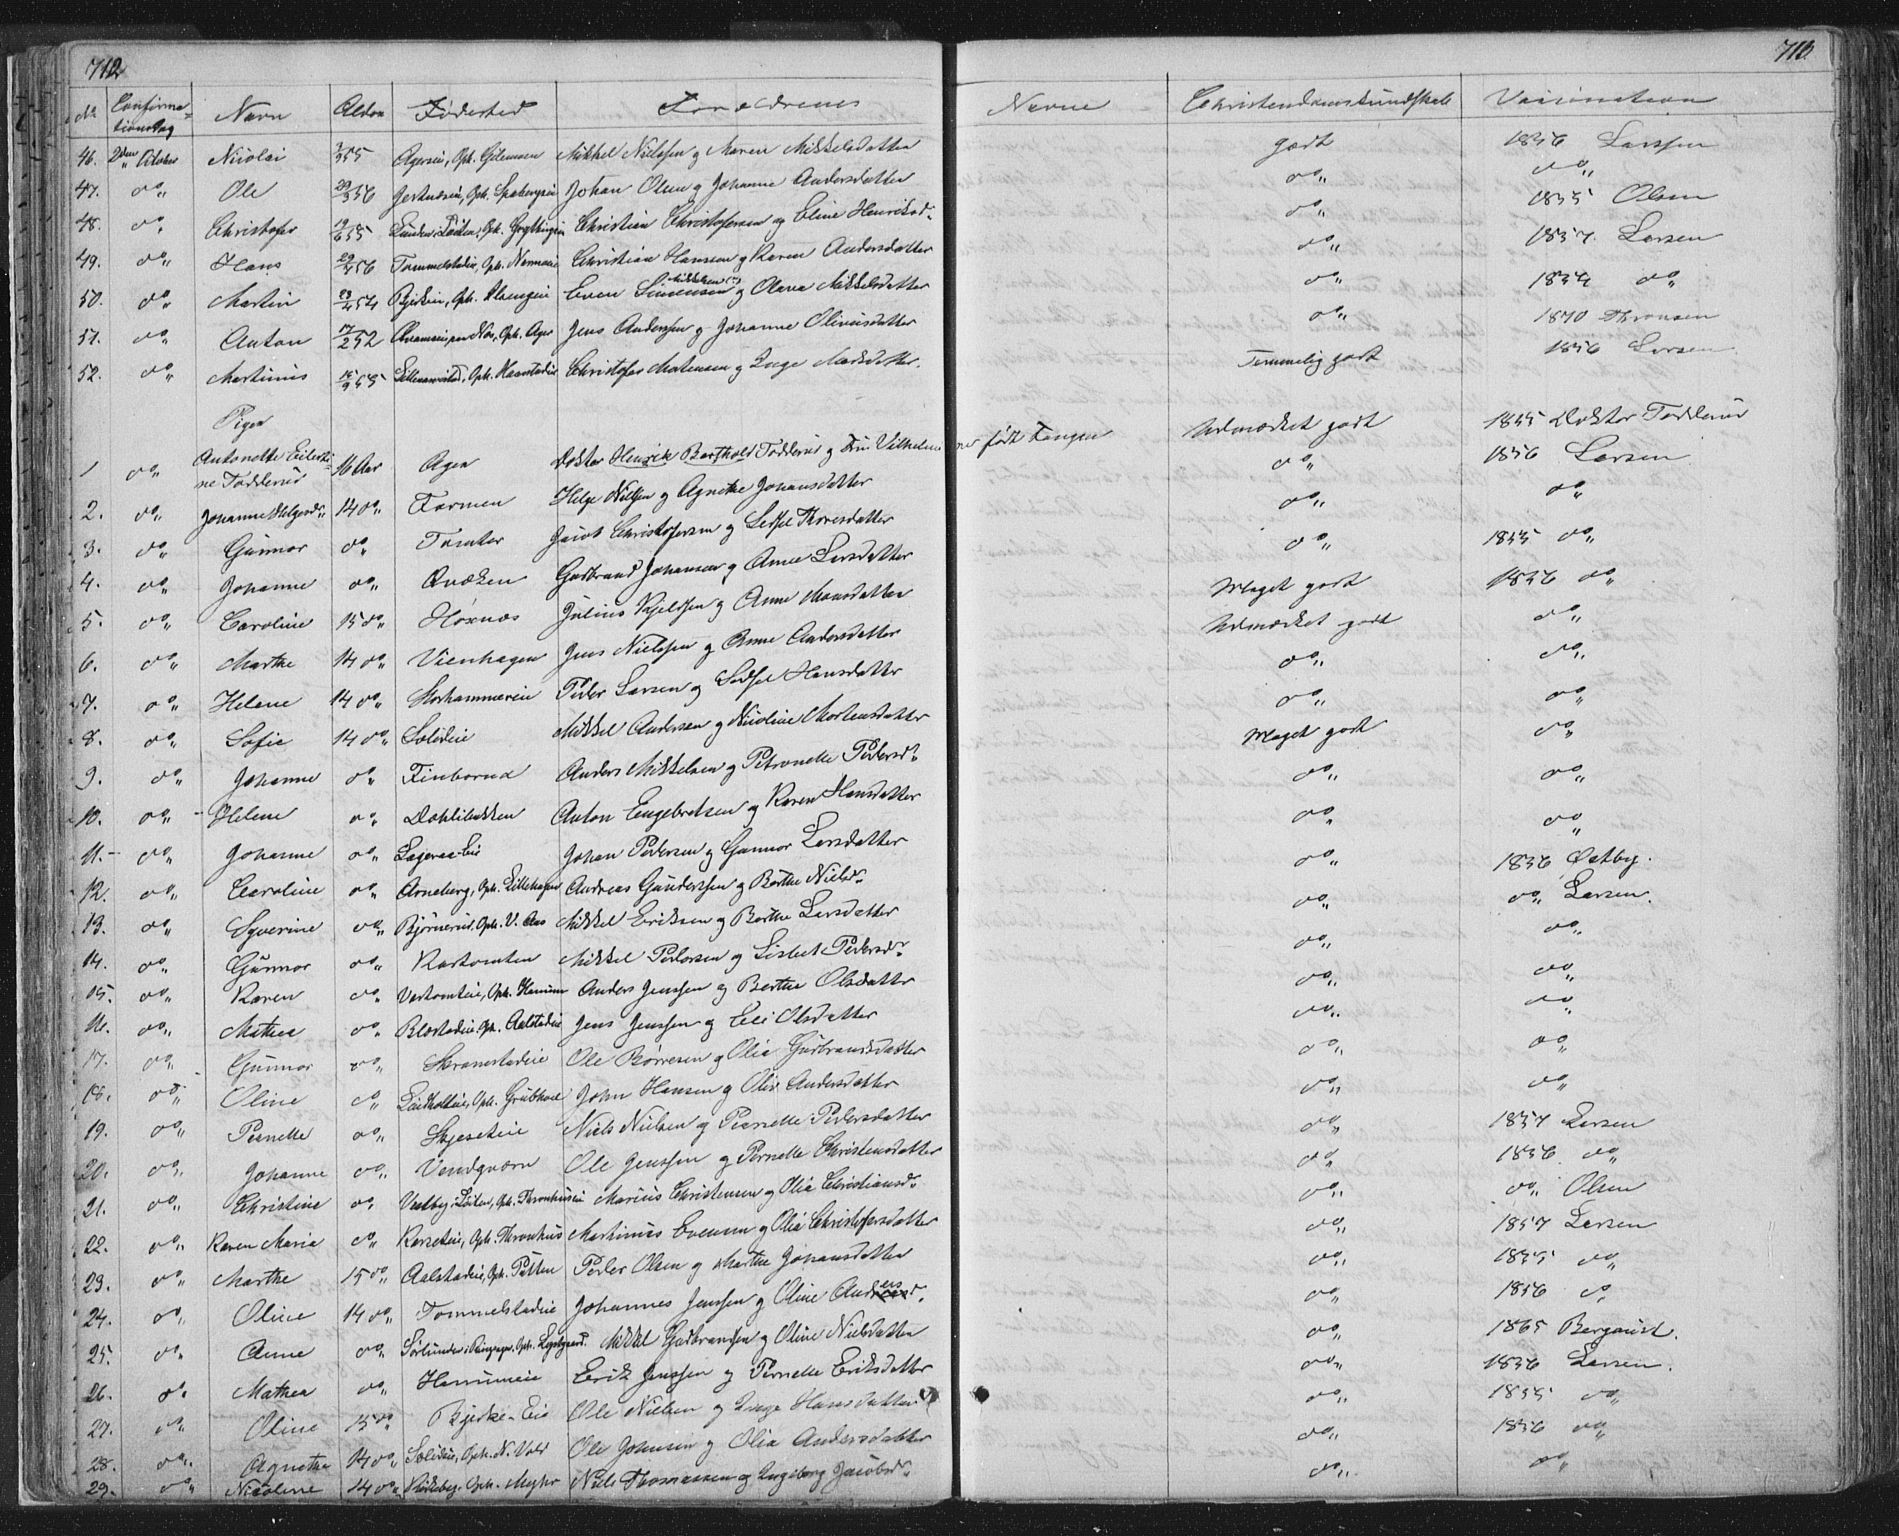 712
713
No Confirmationsdag Navn Alder Fødested Forældrenes Navne Christendomskundskab Vaccination
46. 2den Octobr Nicolai 7/3 55 Agerseie, Oph. Gilemoen Mikkel Nielsen og Maren Mikkelsdatter godt 1856 Larsen
47. do„ Ole 29/3 56 Johan Olsen og Johanne Andersdatter do„ do„
48. do„ Christofer 19/6 55 Christian Christofersen og Eline Henriksd. do„ 1855 Olsen
49. do„ Hans 29/4 56 Tommelstadeie, Oph. Christian Hansen og Karen Andersdatter do„ 1857. Larsen
50. do„ Martin 23/4 54 Bjerkeie, Oph. Even Simensen Mikkelsen (?) og Olava Mikkelsdatter do„ 1854 do„
51. do„ Anton 17/2 52 Jens Andersen og Johanne Oliviusdatter do„ 1870 Thronsen
52. do„ Martinus 15/9 55 Christofer Matensen og Inge Madsdatter. Temmelig godt 1856 Larsen
Piger
1 do„ Antonette Eilertine Todderud 16 Aar Ager Doktor Henrik Barthold Todderud og Fru Vilhelmine født Fangen Udmærket godt 1855 Doktor Todderud
2. do„ Johanne Helgesd. 14 do„ Farmen Helge Nielsen og Agnethe Johansdatter do„ 1856 Larsen
3. do„ Gunnor do„ Tomter Jacob Christofersen og Sedsel Thoresdatter do„ do„
4. do„ Johanne do„ Qvæken Gudbrand Johansen og Anne Larsdatter do„ 1855 do„
5. do„ Caroline 15 do„ Høxnæs Julius Kjeldsen og Anne Monsdatter Meget godt 1856 do„
6. do„ Marthe 14 do„ Vienhagen Jens Nielssen og Anne Andersdatter Udmærket godt do„
7. do„ Helene 14 do„ Storhammereie Peder Larsen og Sedsel Hansdatter do„ do„
8. do„ Sofie 14 do„ Solideie Mikkel Andersen og Nicoline Mortensdatter do„ do„
9. do„ Johanne do„ Finborud Anders Mikkelsen og Petronelle Pedersd. Meget godt do„
10. do„ Helene do„ Dahlibakken Anton Engebretsen og Karen Hansdatter do„ do„
11. do„ Johanne do„ Lageraa-Eie Johan Pedersen og Gunnor Larsdatter do„ do„
12. do„ Caroline do„ Arneberg, Oph. Lillehagen Andreas Gundersen og Berthe Nielsd. do„ 1856 Østby.
13. do„ Syverine do„ Bjørnerud, Oph. V. Aas Mikkel Eriksen og Berthe Larsdatter do„ do„ Larsen.
14. do„ Gunnor do„ Rastomten Mikkel Pedersen og Lisbet Pedersd. do„ do„
15. do„ Karen do„ Anders Jenssen og Berthe Olsdatter do„ do„
16. do„ Mathea do„ Blæstadeie, Oph. Aalstadeie Jens Jenssen og Eli Olsdatter do„ do„
17. do„ Gunnor do„ Skramstadeie Ole Børresen og Olia Gudbrandsdatter do„ do„
18. do„ Oline do„ Lindholteie, Oph. Grubhoel John Hansen og Olia Andersdatter do„ do„
19. do„ Pernelle do„ Skjeseteie Niels Nielsen og Pernelle Pedersdatter do„ 1857 Larsen
20. do„ Johanne do„ Vendqværn Ole Jenssen og Pernelle Christensdatter do„ 1856 do„
21. do„ Christine do„ Vestby i Løiten, Oph. Thronhuseie Marius Christensen og Olia Christiansd. do„ do„ Olsen
22. do„ Karen Maria do„ Korseteie, Oph. Thronhus Martinus Evensen og Olia Christofersdatter do„ 1857 Larsen
23. do„ Marthe 15 do„ Aalstadeie, Oph. Putten Peder Olsen og Marthe Johansdatter do„ 1855 do„
24. do„ Oline 14 do„ Tommelstadeie Johannes Jenssen og Oline Andersd. do„ 1856 do
25. do„ Anne do„ Mikkel Gudbrandsen og Oline Nielsdatter do„ 1865 Bergqvist.
26. do Mathea do„ Hommeneie Erik Jenssen og Pernelle Eriksdatter do„ 1856 Larsen.
27. do„ Oline 15 do Bjerke-Eie Ole Nielsen og Inge Hansdatter do„ 1855 do„
28. do„ Agnethe 14 do„ Solideie, Oph. N. Vold Ole Johnsen og Olia Andersdatter do„ 1856 do„
29. do„ Nicoline 14 do„ Oph. Myhr Niels Thomassen og Ingeborg Jacobsd. do„ do„